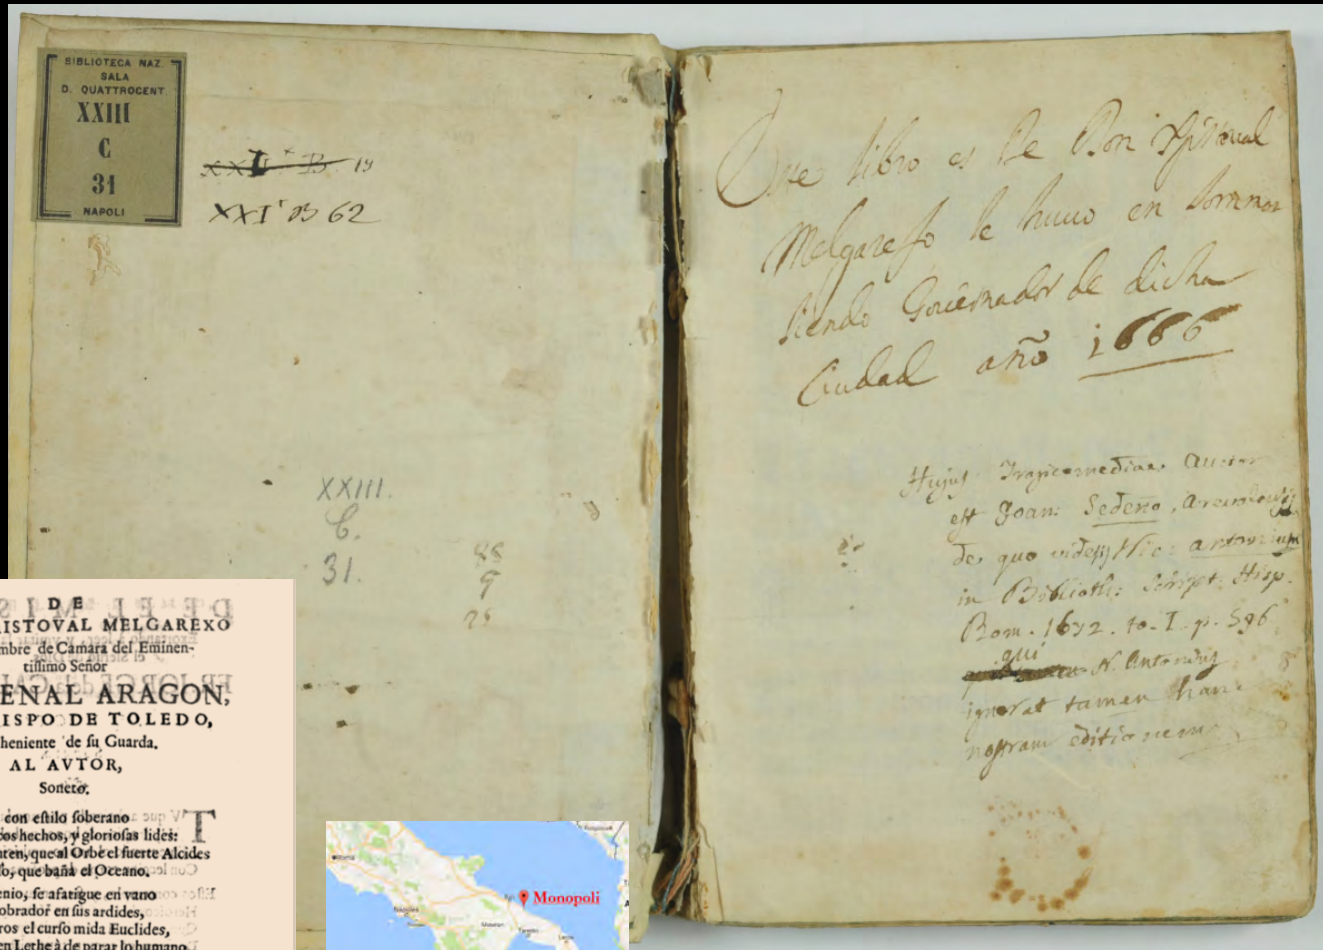 BIBLIOTECA NAZ.
SALA
D. QUATTROCENT.
XXIII
C
31
NAPOLI
19
XXI B 62
XXIII.
C.
31.
Este libro es de Don Xptoval
Melgarejo le huuo en
siendo Gouernador de dicha
Ciudad año 1666
Hujus Tragicomediae Auctor
est Joan: Sedeño,
de quo Nic: Antonium
in Biblioth: Script. Hisp.
Rom. 1672. to. I. p. 596
qui
N. Antonius
ignorat tamen hanc
nostram editionem
DE
ISTOVAL MELGAREXO
mbre de Camara del Eminen-
tissimo Señor
ENAL ARAGON,
ISPO DE TOLEDO,
heniente de su Guarda.
AL AVTOR,
Soneto.
con estilo soberano
cos hechos, y gloriosas lides:
nten, que al Orbe el fuerte Alcides
o, que baña el Oceano.
enio, se afatigue en vano
obrador en sus ardides,
ros el curso mida Euclides,
en Lethe à de parar lo humano
Monopoli